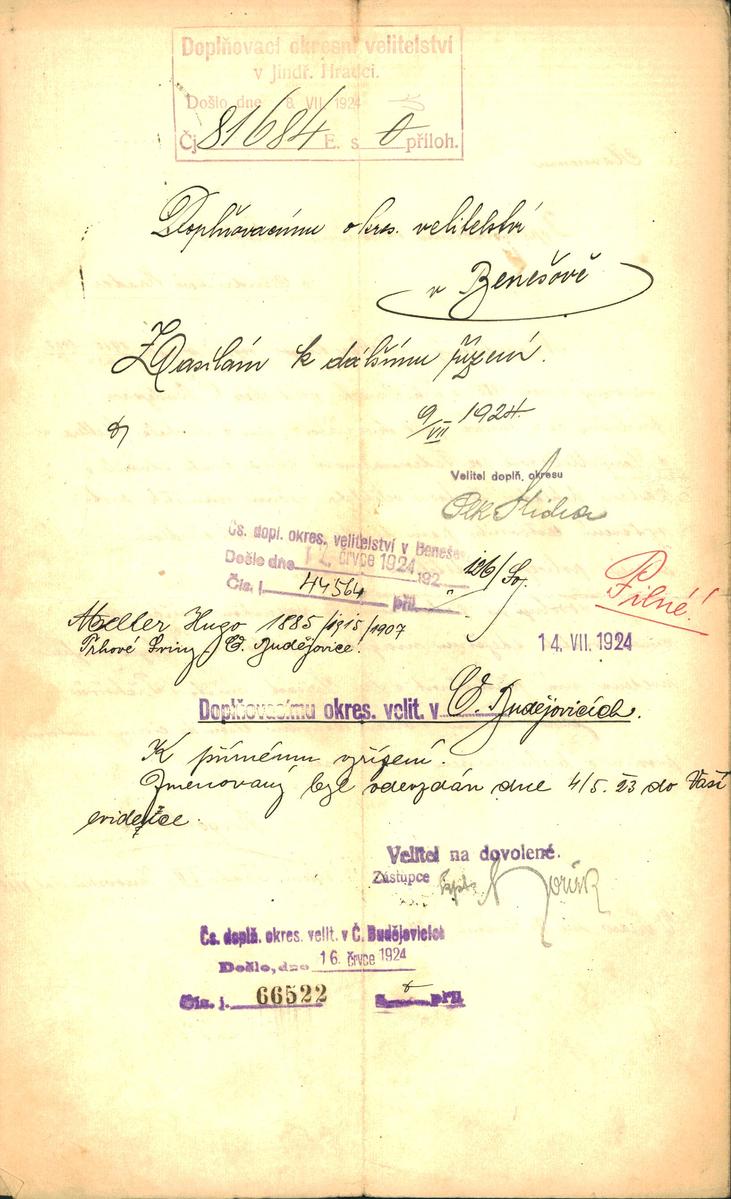 Doplňovací okresní velitelství
v Jindř. Hradci.
Došlo dne 8. VII. 1924
Čj. 81684 E. s 0 příloh.
Doplňovacímu okres. velitelství
v Benešově
Zasílám k dalšímu řízení.
9/VII 1924.
Velitel doplň. okresu
Čs. dopl. okres. velitelství v Benešo
Došlo dne 12. črvce 1924 192
Čís. j. 44564 příl.
Pilné!
Hugo 1885/1915/1907
Trhové Sviny, Č. Budějovice.
14. VII. 1924
Doplňovacímu okres. velit. v Č. Budějovicích.
K přímému vyřízení.
Jmenovaný byl odevzdán dne 4/5. 23 do Vaší
evidence.
Velitel na dovolené.
Zástupce
Čs. doplň. okres. velit. v Č. Budějovicích
Došlo, dne 16. črvce 1924
Čís. j. 66522 S příl